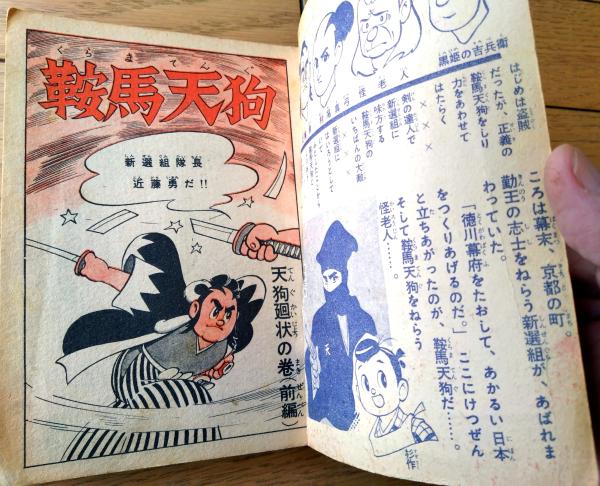 くらまてんぐ
鞍馬天狗
新選組隊長
近藤勇だ!!
天狗廻状の巻(前編)
てんぐかいじょう
まき
ぜんぺん
黒姫の吉兵衛
怪老人
はじめは盗賊
だったが、正義の
鞍馬天狗をしり
力をあわせて
はたらく
×××
剣の達人で
新選組に
味方する
鞍馬天狗の
いちばんの大敵
×××
新選組に
ころは幕末、京都の町。
勤王の志士をねらう新選組が、あばれま
わっていた。
「徳川幕府をたおして、あかるい日本
をつくりあげるのだ。」ここにけつぜん
と立ちあがったのが、鞍馬天狗だ……。
そして鞍馬天狗をねらう
怪老人……。
杉作